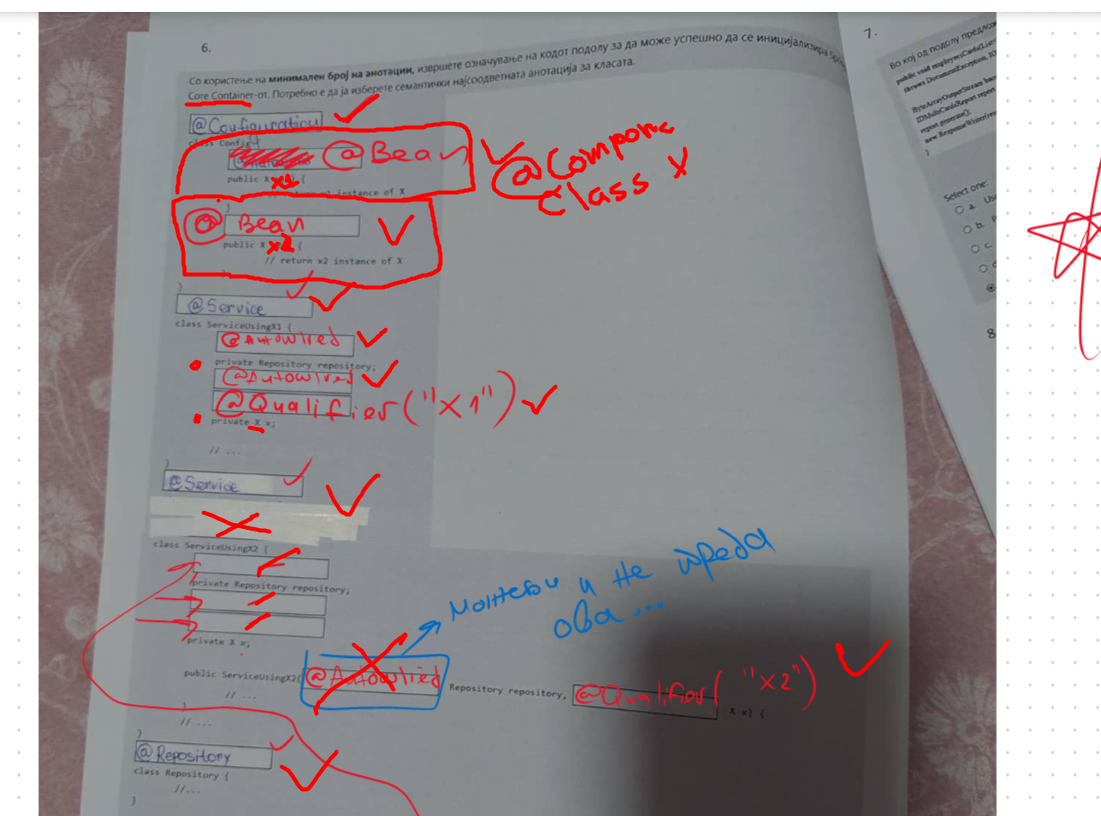 6.
Со користење на минимален број на анотации, извршете означување на кодот подолу за да може успешно да се иницијализира
Core Container-от. Потребно е да ја изберете семантички најсоодветната анотација за класата.
@Configuration
class Config {
@Bean
public X x1 {
// return x1 instance of X
}
@Bean
public X x2 {
// return x2 instance of X
}
@Compone
class X
@Service
class ServiceUsingX1 {
@Autowired
private Repository repository;
@Autowired
@Qualifier("x1")
private X x;
// ...
}
@Service
class ServiceUsingX2 {
private Repository repository;
private X x;
public ServiceUsingX2(
@Autowlied
Repository repository,
@Qualifier("x2")
X x) {
// ...
}
// ...
}
и не треба
ова...
@Repository
class Repository {
//...
}
7.
Во кој од подолу
public void
throws DocumentException,
report.generate();
new
}
Select one:
a.
b.
c
8